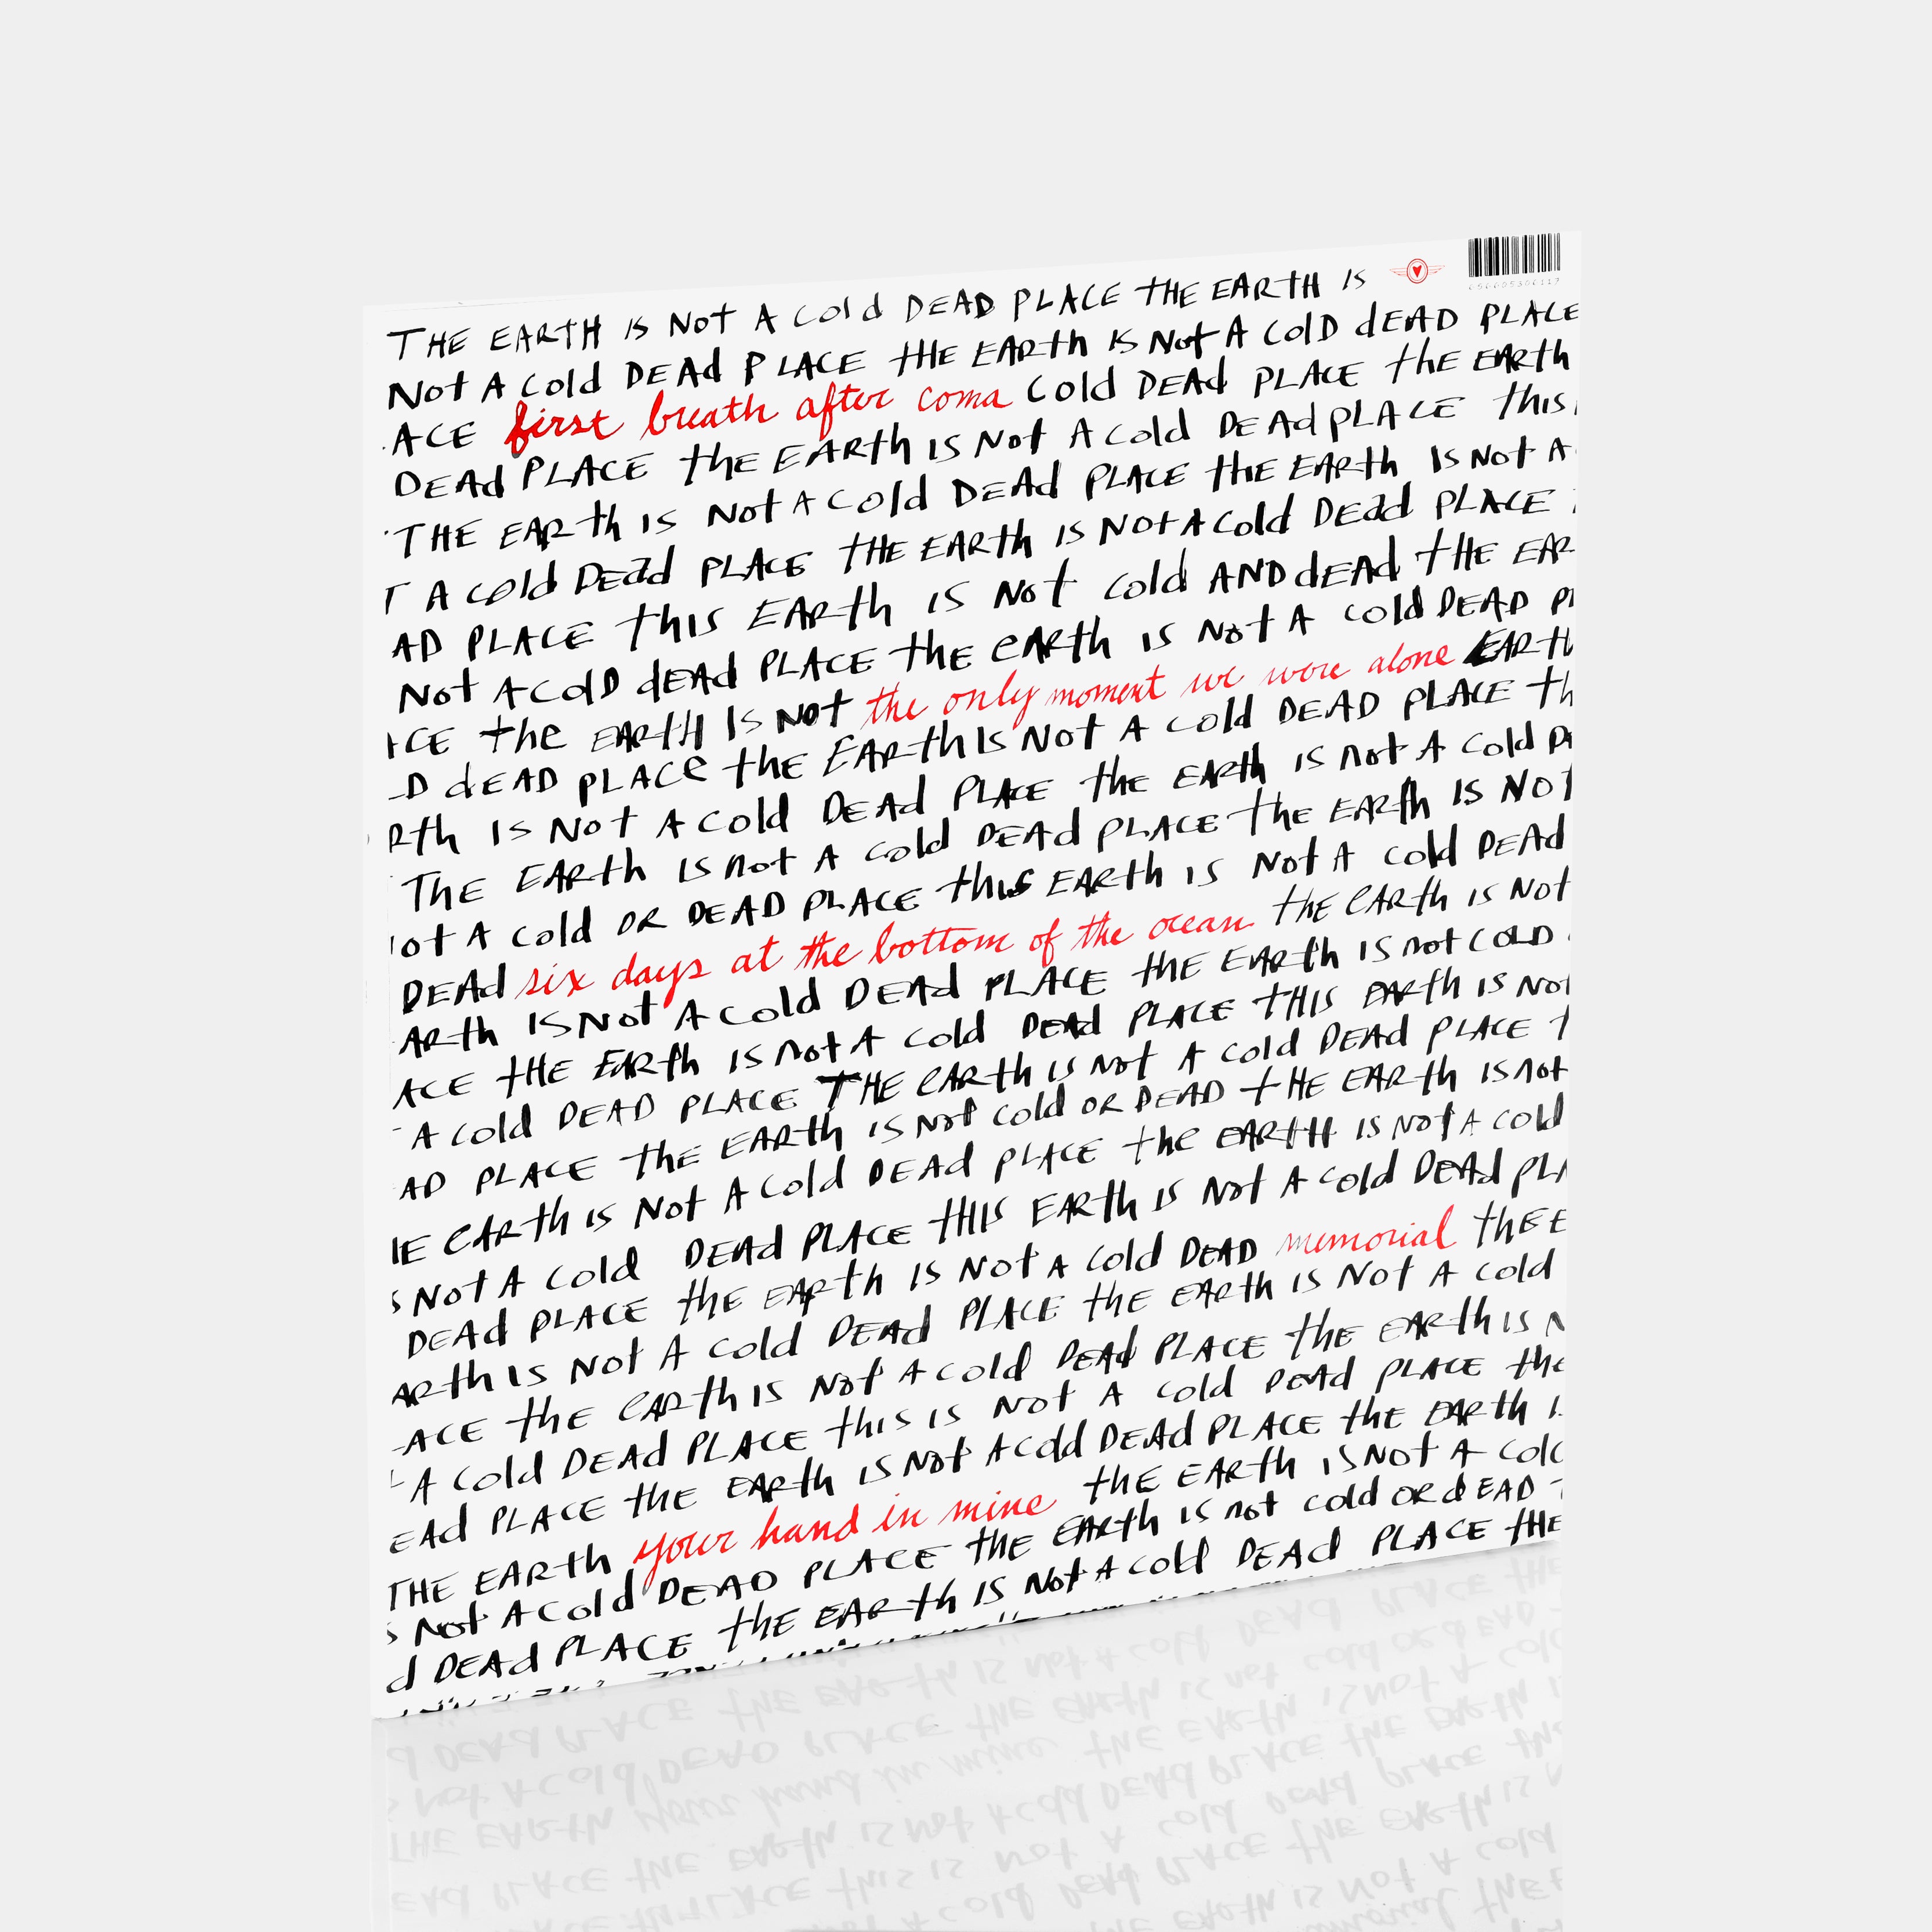 THE EARTH IS Not A Cold DEAD PLACE THE EARTH IS
Not A Cold DEAd PLACE tHE EARth IS Not A ColD dEAD PLACE
ACE first breath after coma Cold DEAd PLACE thE EARth
DEAd PLACE thE EARth IS Not A Cold DEAd PLACE this
THE EARth IS Not A Cold DEAd PLACE thE EARth IS Not A
T A Cold DEad PLACE tHE EARth IS Not A Cold DEad PLACE
AD PLACE this EARth IS Not Cold AND dEAd tHE EAR
Not A ColD dEAD PLACE thE eARth IS Not A Cold DEAD Pl
ACE the EARtH IS Not the only moment we were alone EARth
D dEAD PLACe thE EARth IS Not A Cold DEAD PLACE th
Rth IS Not A Cold DEAd PLACE thE EARth IS not A Cold D
THE EARth IS not A Cold DEAd PLACE thE EARth IS NOT
ot A Cold OR DEAD PLACE this EARth IS Not A Cold DEAd
DEAd six days at the bottom of the ocean thE EARth IS Not
ARth IS Not A Cold DEAd PLACE thE EARth IS not COLD
ACE tHE EARth IS not A Cold DEAd PLACE tHIS EARth IS Not
A Cold DEAD PLACE THE EARth IS Not A Cold DEAd PLACE
AD PLACE thE EARth IS Not Cold OR DEAD tHE EARth IS not
HE EARth IS Not A Cold DEAd PLACE the EARtH IS Not A Cold
S Not A Cold DEAd PLACE tHIS EARth IS Not A Cold DEAd PLA
DEAd PLACE thE EARth IS Not A Cold DEAD memorial thE E
ARth IS Not A Cold DEAd PLACE thE EARth IS Not A Cold
ACE the EARth IS Not A Cold DEAd PLACE thE EARth IS N
A Cold DEAd PLACE this IS Not A Cold DEAd PLACE the
EAd PLACE thE EARth IS Not A Cold DEAd PLACE thE EARth I
THE EARth your hand in mine thE EARth IS Not A Cold
S Not A Cold DEAD PLACE thE EARth IS not Cold OR dEAD
d DEAd PLACE thE EARth IS Not A Cold DEAd PLACE tHE